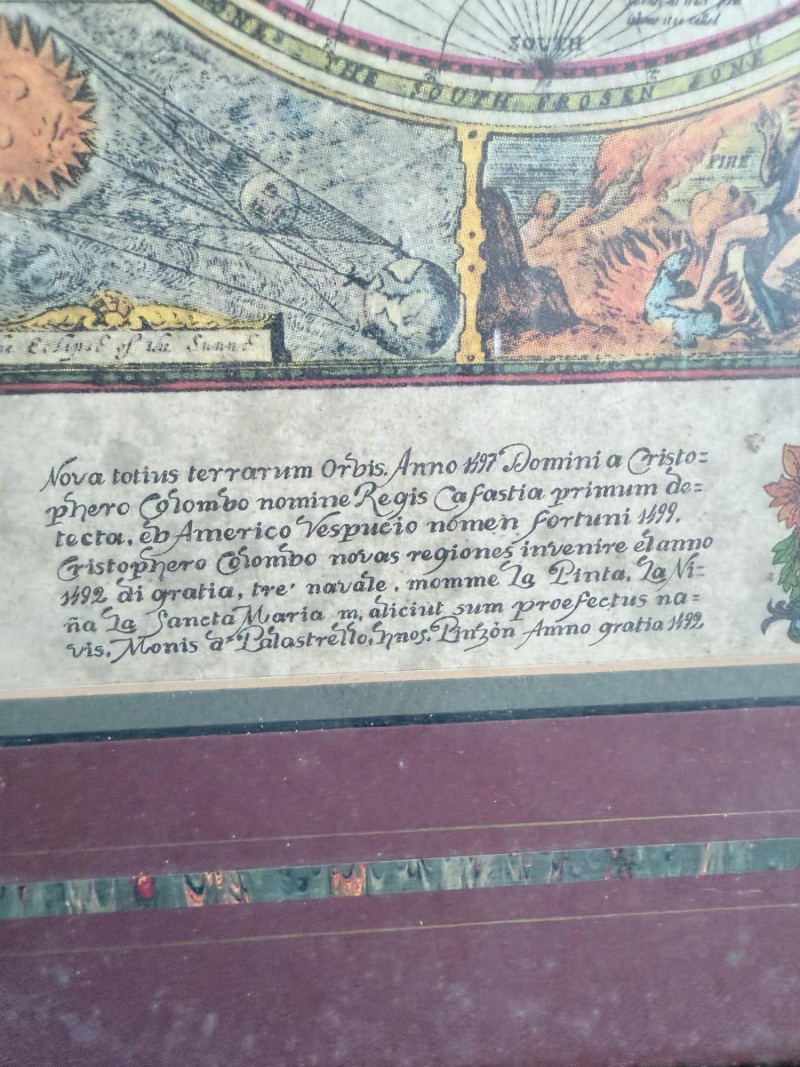 SOUTH
ZONES - THE SOUTH FROSEN ZONE
FIRE
The Eclipse of the Sunne
Nova totius terrarum Orbis. Anno 1497 Domini a Cristo=
phero Colombo nomine Regis Cafastia primum de=
tecta, eb Americo Vespucio nomen fortuni 1499.
Cristophero Colombo novas regiones invenire et anno
1492 di gratia, tre' navale, momme La Pinta, La Ni=
ña La Sancta Maria m, aliciut sum proefectus na=
vis. Monis d' Palastrello, hnos. Pinzòn Amno gratia 1492